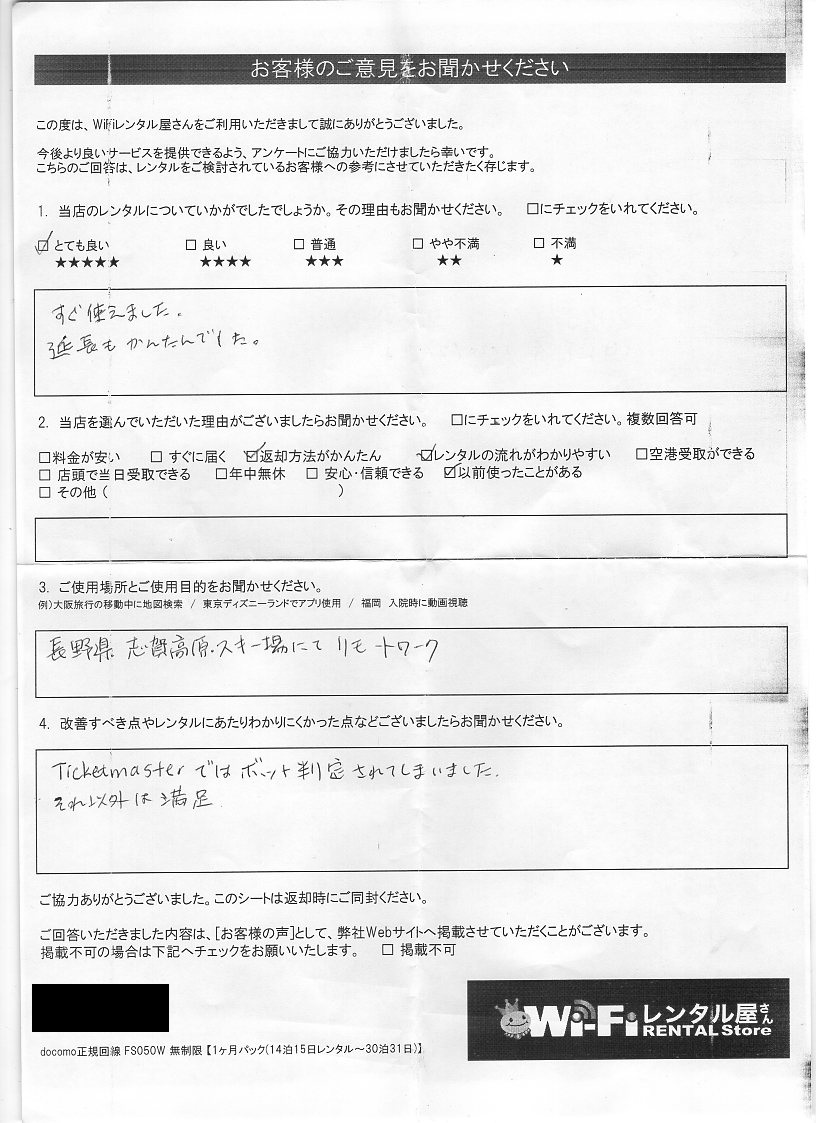 お客様のご意見をお聞かせください
この度は、WiFiレンタル屋さんをご利用いただきまして誠にありがとうございました。
今後より良いサービスを提供できるよう、アンケートにご協力いただけましたら幸いです。
こちらのご回答は、レンタルをご検討されているお客様への参考にさせていただきたく存じます。
1. 当店のレンタルについていかがでしたでしょうか。その理由もお聞かせください。 □にチェックをいれてください。
☑ とても良い □ 良い □ 普通 □ やや不満 □ 不満
★★★★★ ★★★★ ★★★ ★★ ★
すぐ使えました。
延長もかんたんでした。
2. 当店を選んでいただいた理由がございましたらお聞かせください。 □にチェックをいれてください。複数回答可
□料金が安い □ すぐに届く ☑返却方法がかんたん ☑レンタルの流れがわかりやすい □空港受取ができる
□ 店頭で当日受取できる □年中無休 □ 安心・信頼できる ☑以前使ったことがある
□ その他 ( )
3. ご使用場所とご使用目的をお聞かせください。
例)大阪旅行の移動中に地図検索 / 東京ディズニーランドでアプリ使用 / 福岡 入院時に動画視聴
長野県 志賀高原・スキー場にて リモートワーク
4. 改善すべき点やレンタルにあたりわかりにくかった点などございましたらお聞かせください。
Ticketmasterではボット判定されてしまいました.
それ以外は満足.
ご協力ありがとうございました。このシートは返却時にご同封ください。
ご回答いただきました内容は、[お客様の声]として、弊社Webサイトへ掲載させていただくことがございます。
掲載不可の場合は下記へチェックをお願いいたします。 □ 掲載不可
Wi-Fiレンタル屋さん
RENTAL Store
docomo正規回線 FS050W 無制限【1ヶ月パック(14泊15日レンタル～30泊31日)】